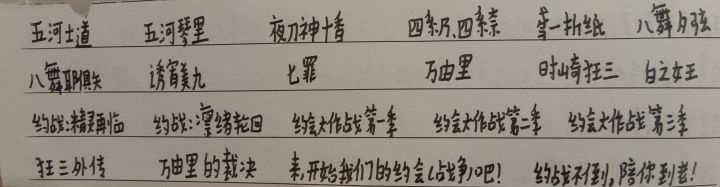 五河士道 五河琴里 夜刀神十香 四糸乃、四糸奈 鸢一折纸 八舞夕弦
八舞耶俱矢 诱宵美九 七罪 万由里 时崎狂三 白之女王
约战:精灵再临 约战:凛绪轮回 约会大作战第一季 约会大作战第二季 约会大作战第三季
狂三外传 万由里的裁决 来,开始我们的约会(战争)吧! 约战不倒,陪你到老!